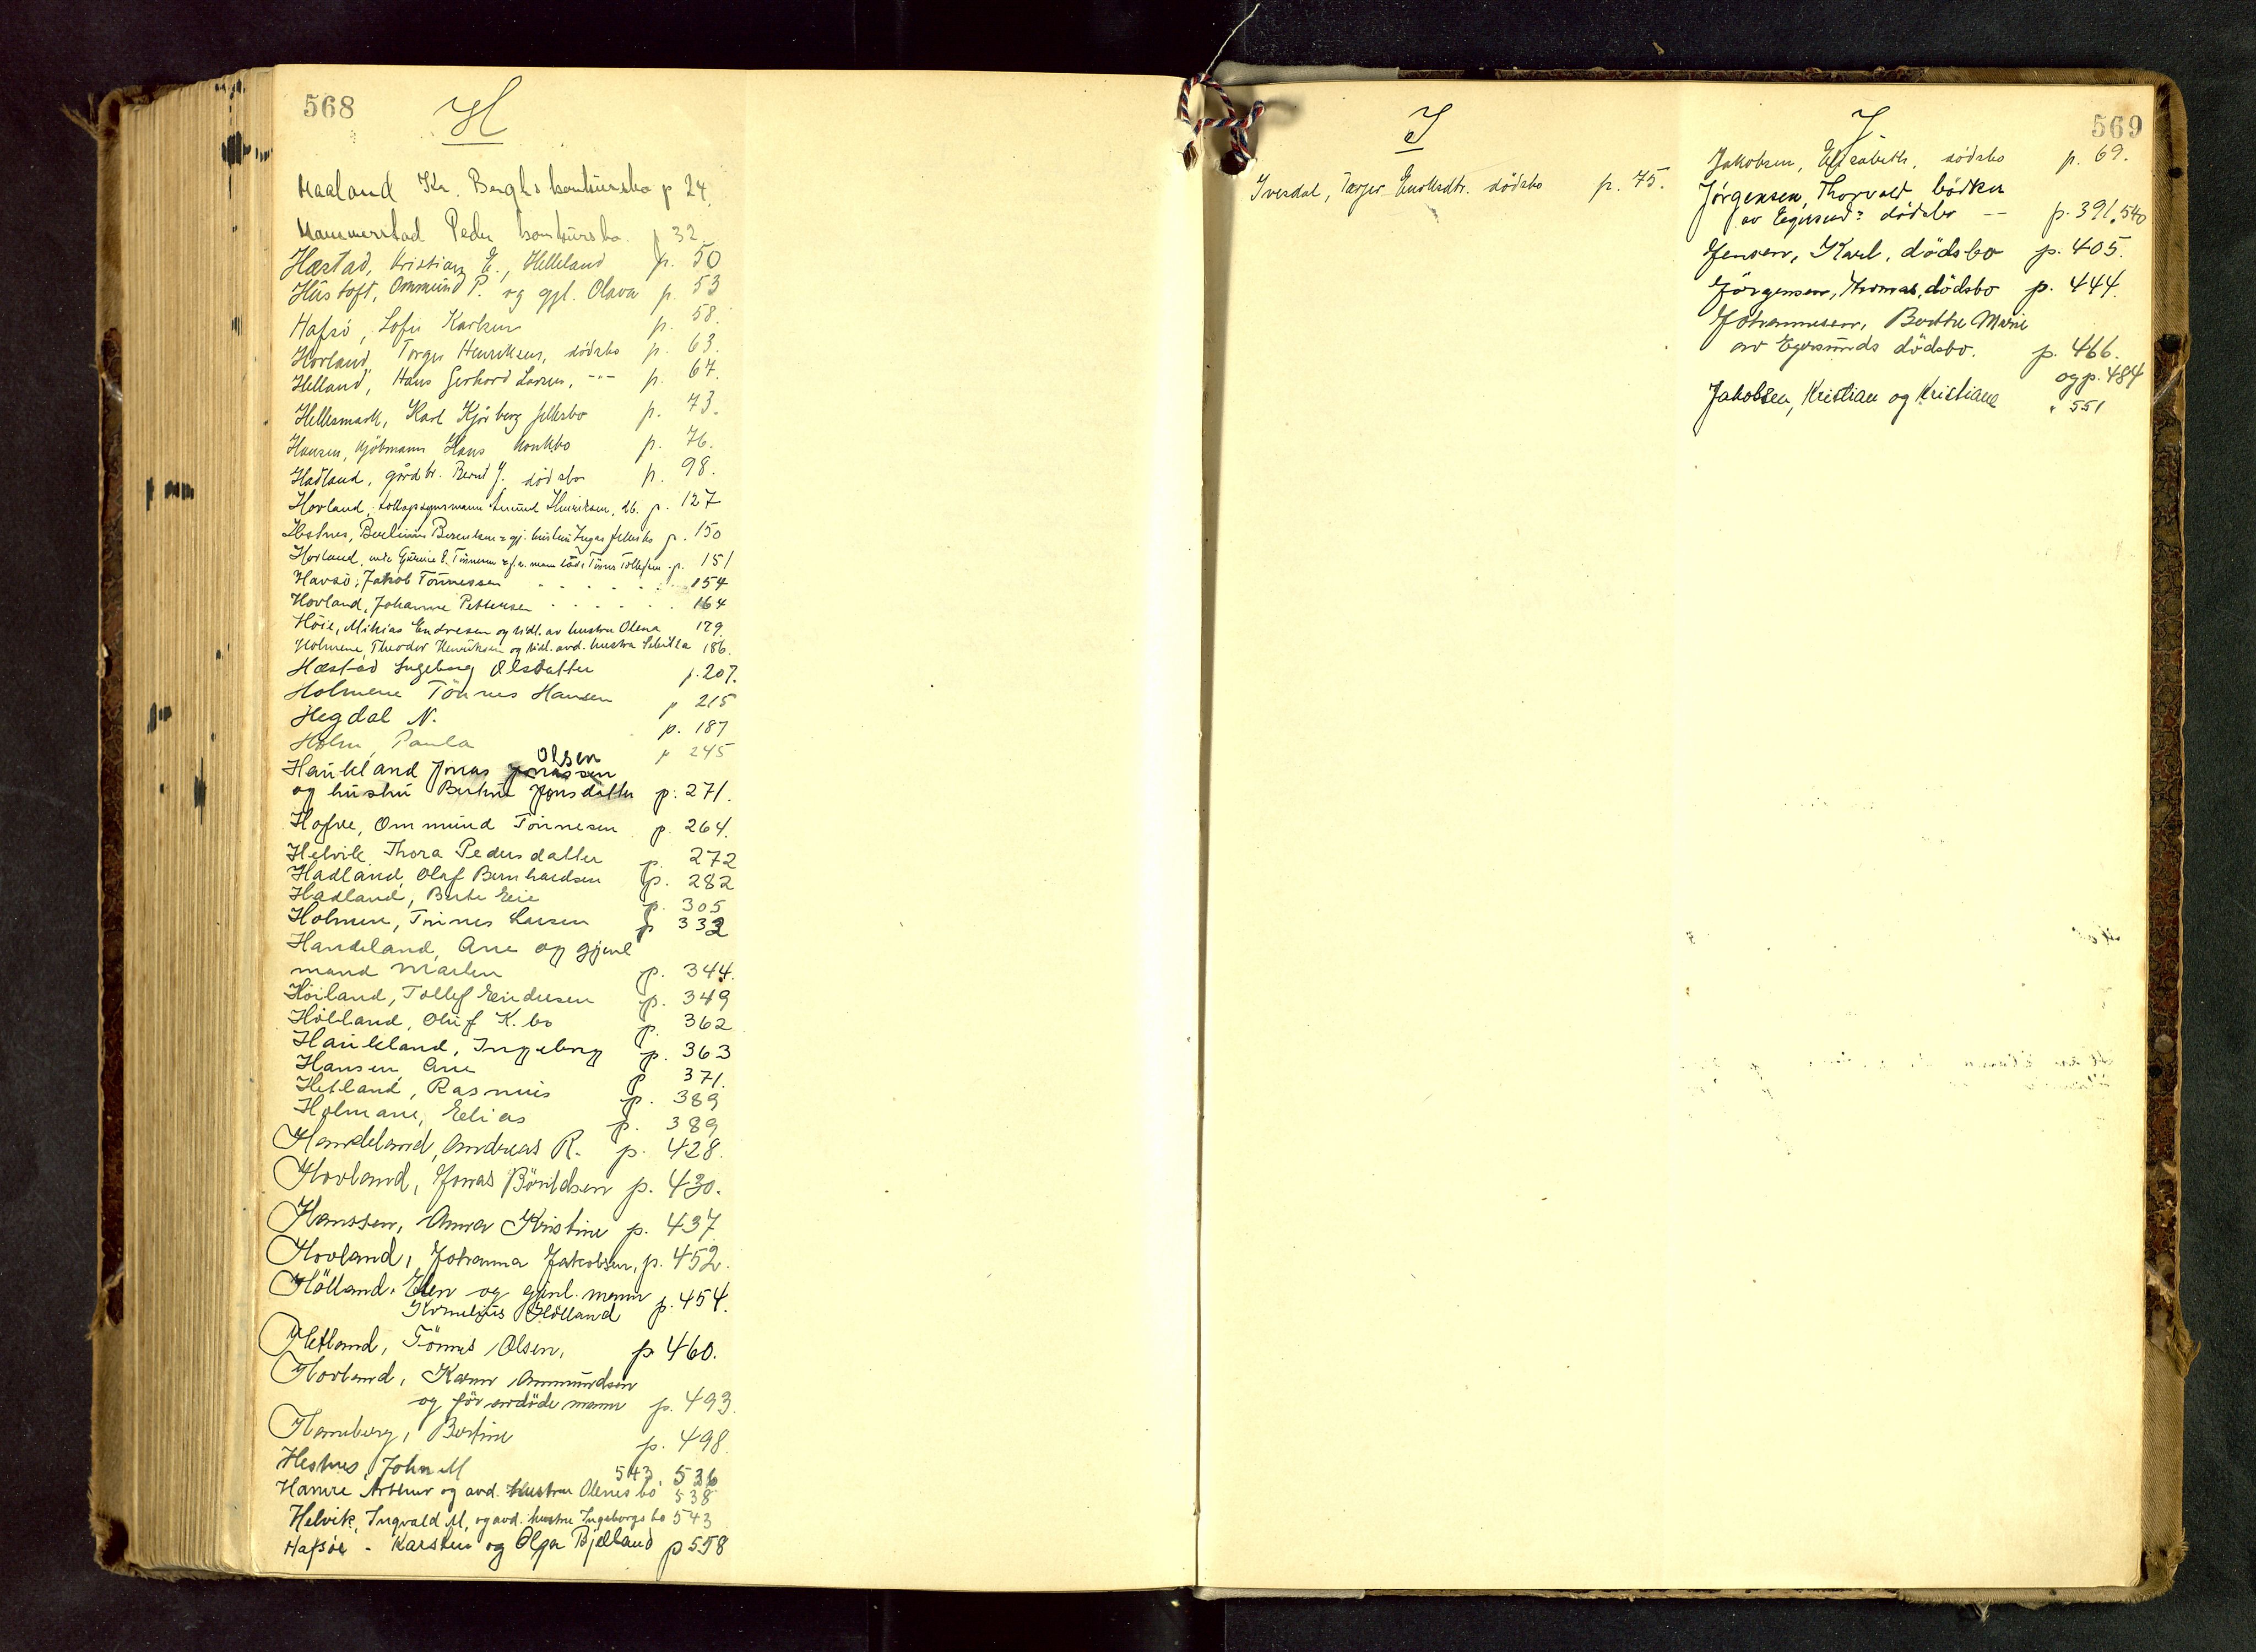 568
H
Haaland Kr. Berghs konkursbo p 24.
Hammerstad Peder konkursbo. p 32.
Hæstad, Kristian E., Helleland p. 50
Hústoft, Ommúnd P. og gjl. Olava p. 53
Hafsö, Sofie Karlsen p. 58.
Hovland, Torger Henriksen, dödsbo p. 63.
Helland, Hans Gerhard Larsen, -"- p. 67.
Hellesmark, Karl Kjörberg fellesbo p. 73.
Hansen, Kjöbmann Hans konkbo p. 76.
Hadland, gårdbr. Bernt J. dödsbo p. 98.
Hovland, Henriksen, db. p. 127
Hestnes, Berentsen p. 150
Hovland, enke Tönnes Tollefsen p. 151
Havsö, Jakob Tönnessen 154
Hovland, Johanne Pettersen 164
Höie, Mikias Endresen og tidl. av hustru Olena 179
Holmene, Theodor Henriksen og tidl. avd. hustru 186.
Hæstad Ingeborg Olsdatter p. 207.
Holmene Tönnes Hansen p 215
Hegdal N. p. 187
Holm, Paula p 245
Olsen
Haúkland Jonas Jonassen
og hústrú Jonsdatter p. 271.
Ommúnd Tönnesen p. 264.
Helvik, Thora Pedersdatter p. 272
Hadland, Olaf Bernhardsen p. 282
Hadland, Berte p. 305
Holmen, Tönnes Larsen p 332
Handeland, Ane og gjenl
mand Martin p. 344.
Höiland, Tollef Endresen p. 349
Hölland, Oluf K. bo p. 362
Haúkland, Ingeborg p. 363
Hansen, Ane p 371.
Hetland, Rasmús p. 389
Holmane, Elias p. 389
Handeland, Andreas R. p. 428.
Hovland, Jonas p. 430.
Hanssen, Anna Kristine p. 437
Hovland, Johanna Jakobsen, p. 452.
Hölland, Elen og gjenl. mann p. 454.
Kornelius Hölland
Hetland, Tönnes Olsen, p 460.
Hovland, Karen Ommúndsen
og för avdöde mann p. 493.
Hanneberg, Bertine p. 498.
Hestnes, John M 543 536
Hamre og avd. hustru Olenes bo 538
Helvik, Ingvald M, og avd. hustru Ingeborgs bo 543
Hafsöe - Karsten og Olga Bjelland p 558
I
Ivesdal, Enoksdtr. dödsbo p. 75.
J
569
Jakobsen, Elisabeth, dödsbo p. 69.
Jörgensen, Thorvald bödker
av Egersund dödsbo -- p. 391, 540
Jensen, Karl, dödsbo p. 405.
Jörgensen, Thomas, dödsbo p. 444.
Johannessen, Berthe Marie
av Egersúnds dödsbo. p. 466.
og p. 484
Jakobsen, Kristian og Kristiane " 551